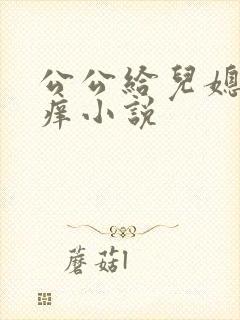 公公給兒媳
痒小説
蘑菇l